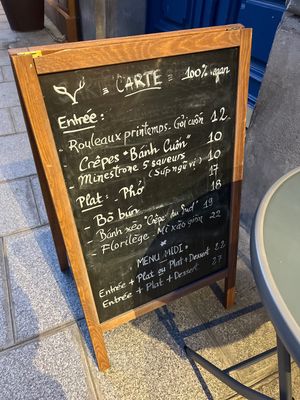 CARTE 100% vegan
Entrée :
Rouleaux printemps. Gỏi cuốn 12
Crêpes "Bánh Cuôn" 10
Minestrone 5 saveurs 10
(Súp ngũ vị)
Plat : Phở 17
- Bô bún 18
- Bánh xèo "Crêpe du Sud" 19
- Florilège - Mì xào giòn 22
* MENU MIDI *
Entrée + Plat ou Plat + Dessert 22
Entrée + Plat + Dessert 27